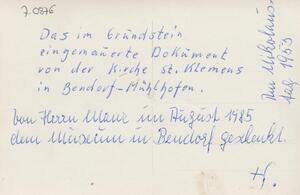 7.0876
Das im Grundstein
eingemauerte Dokument
von der Kirche St. Klemens
in Bendorf-Mühlhofen.
Am Nikolaus
tag 1953
von Herrn Manz im August 1985
dem Museum in Bendorf geschenkt.
H.